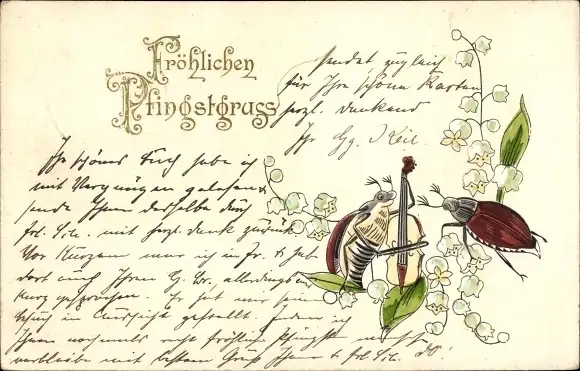 Fröhlichen
Pfingstgruss
sendet zugleich
für Ihre schöne Karten
herzl. dankend
Ihr Gg. Keil.
Ihr schönes Buch habe ich
mit Vergnügen gelesen &
sende Ihnen dasselbe durch
frl. mit herzl. Dank zurück
Vor Kurzem war ich in Fr. & hab
dort auch Ihren G. Br., allerdings
kurz gesprochen. Er hat mir seinen
Besuch in Aussicht gestellt. Indem ich
Ihnen nochmals recht fröhliche Pfingsten
verbleibe mit bestem Gruß Ihnen & frl.